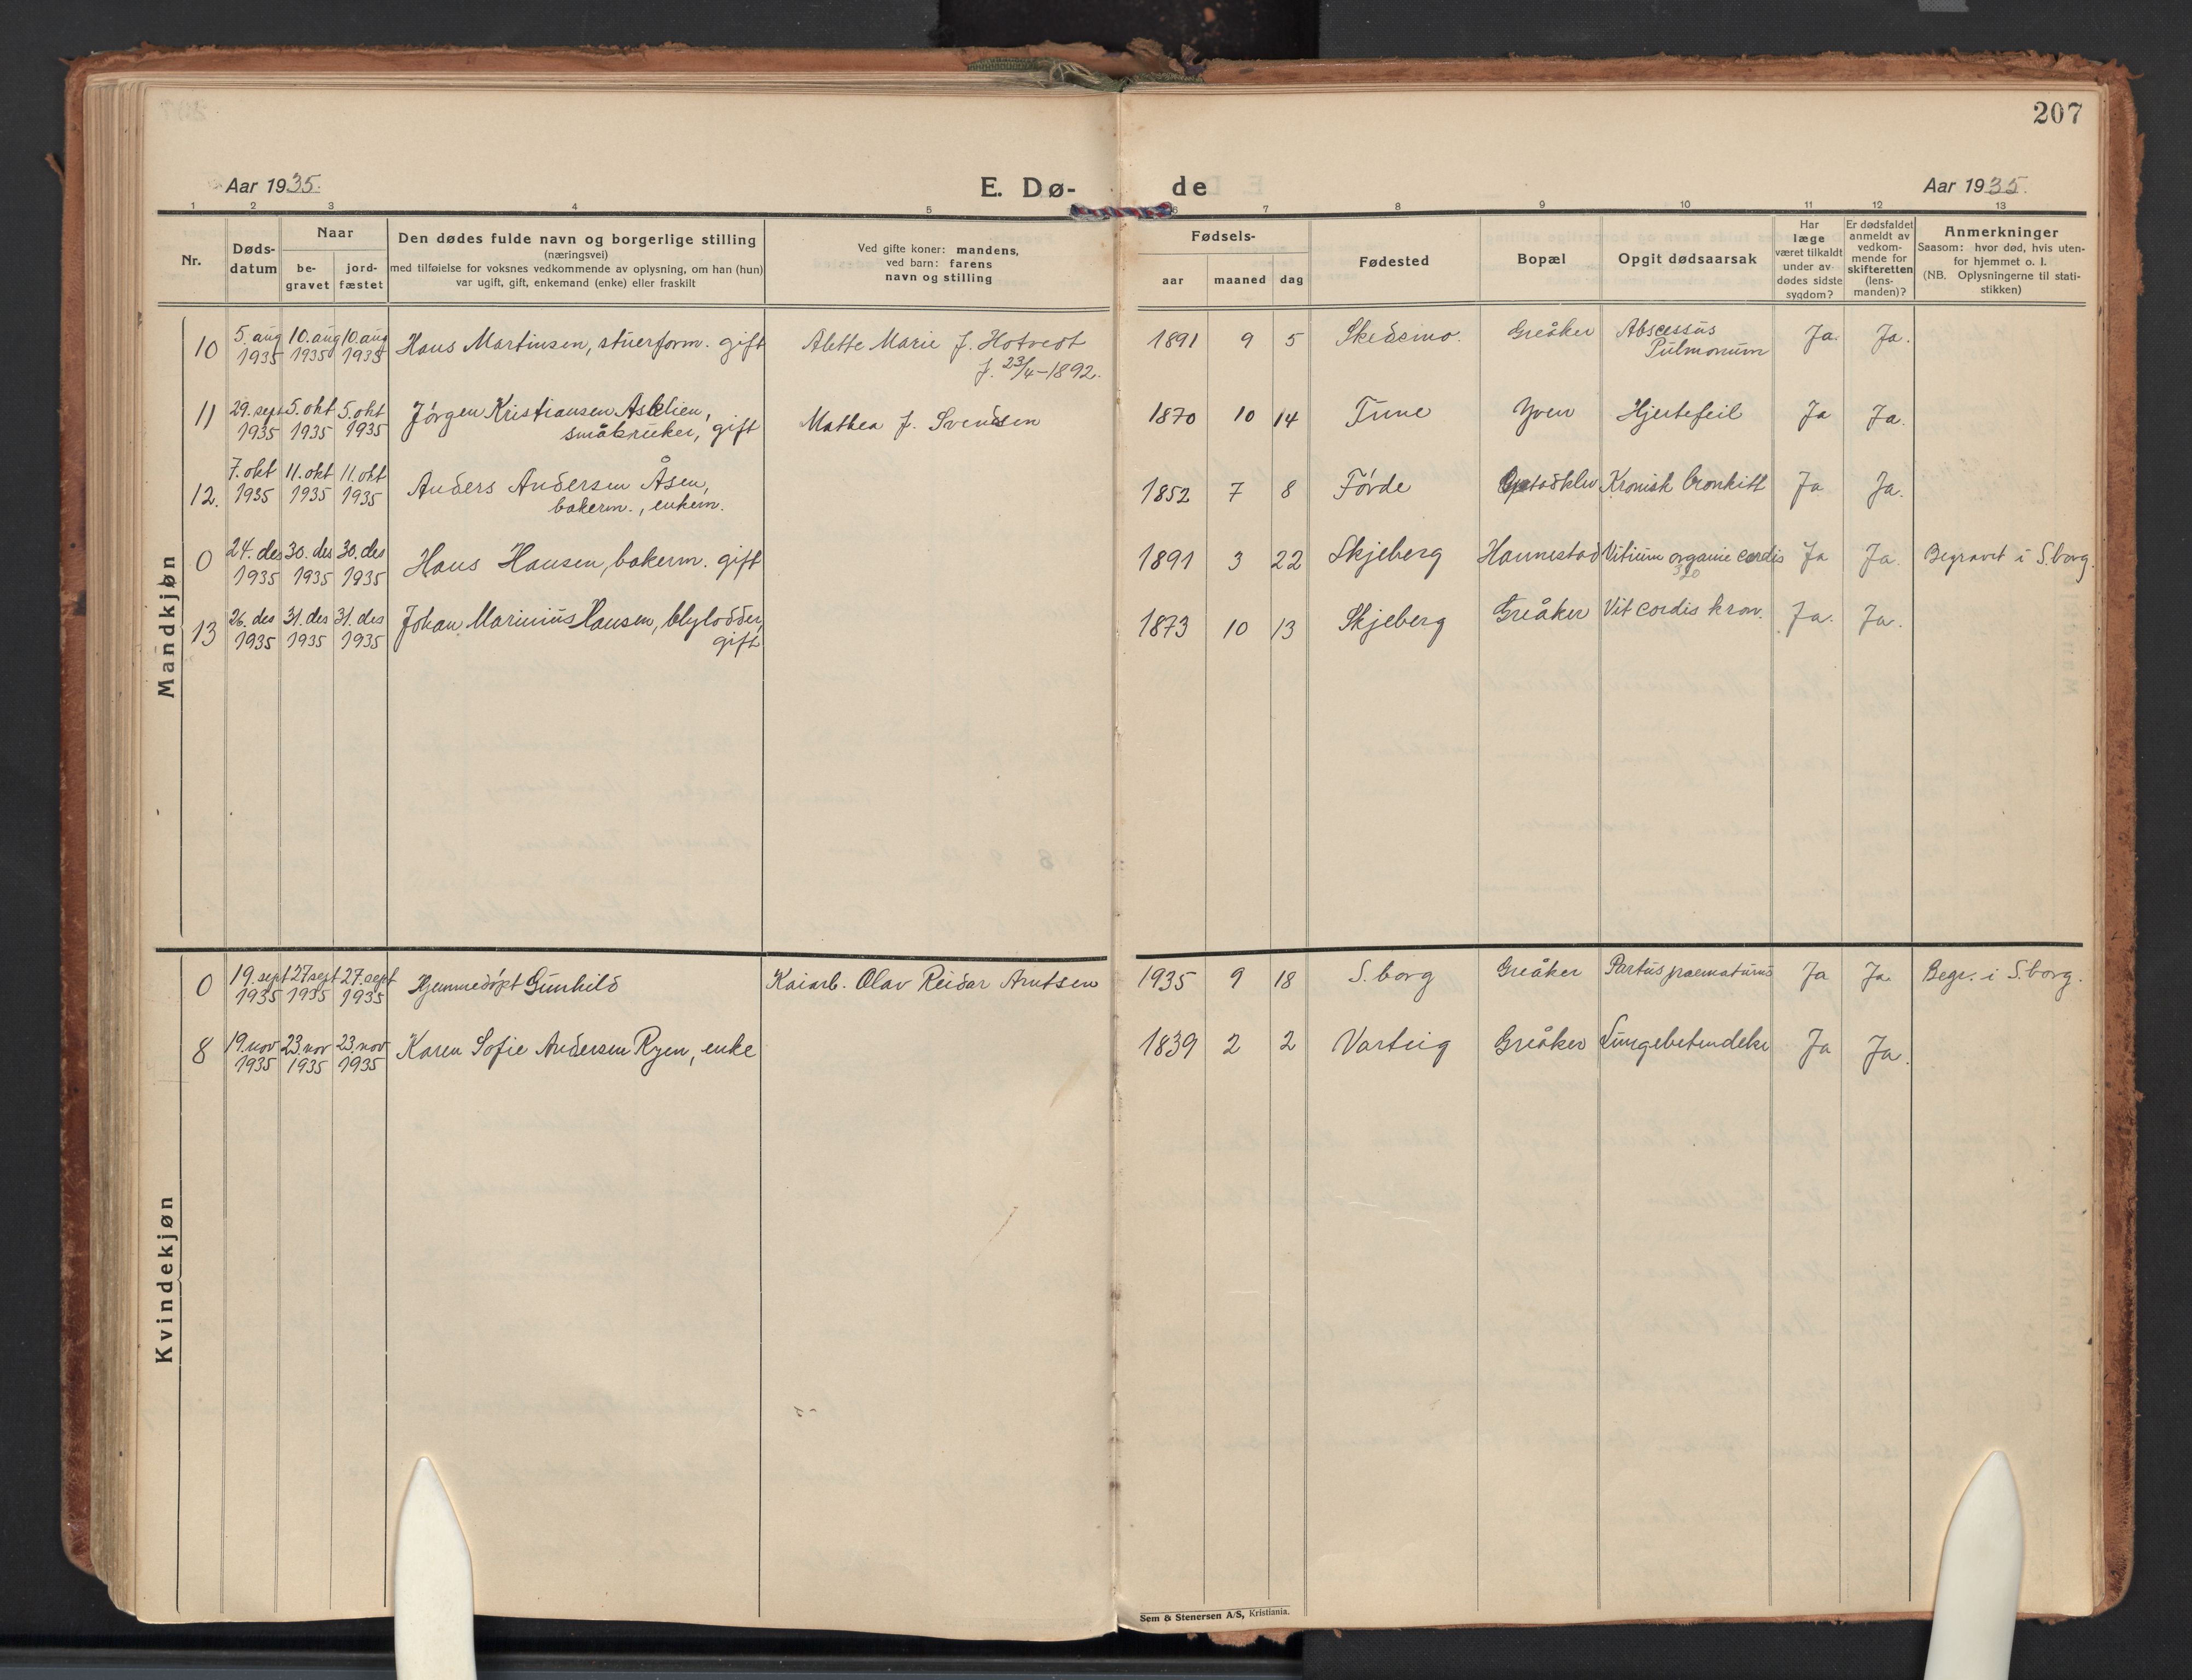 207
Aar 1935.
E. Dø-
de
Aar 1935.
1 2 3 4 5
6 7 8 9 10 11 12 13
Nr.
Døds-
datum
Naar
be-
gravet
jord-
fæstet
Den dødes fulde navn og borgerlige stilling
(næringsvei)
med tilføielse for voksnes vedkommende av oplysning, om han (hun)
var ugift, gift, enkemand (enke) eller fraskilt
Ved gifte koner: mandens,
ved barn: farens
navn og stilling
Fødsels-
aar
maaned
dag
Fødested
Bopæl
Opgit dødsaarsak
Har
læge
været tilkaldt
under av-
dødes sidste
sygdom?
Er dødsfaldet
anmeldt av
vedkom-
mende for
skifteretten
(lens-
manden)?
Anmerkninger
Saasom: hvor død, hvis uten-
for hjemmet o. l.
(NB. Oplysningerne til stati-
stikken)
Mandkjøn
10 5. aug 1935 10. aug 1935 10. aug 1935 Hans Martinsen, stuerform. gift Alette Marie f. Hotvedt
f. 23/4-1892.
1891 9 5 Skedsmo. Greåker Abscessus
Pulmonum Ja. Ja.
11 29. sept 1935 5. okt 1935 5. okt 1935 Jørgen Kristiansen Asklien,
småbruker, gift Mathea f. Svendsen
1870 10 14 Tune Yven Hjertefeil Ja Ja.
12. 7. okt 1935 11. okt 1935 11. okt 1935 Anders Andersen Åsen,
bakerm., enkem.
1852 7 8 Førde Kronisk bronkitt Ja Ja.
0 24. des 1935 30. des 1935 30. des 1935 Hans Hansen, bakerm. gift
1891 3 22 Skjeberg Hannestad Vitium organic cordis Ja Ja. Begravet i S.borg.
13 26. des 1935 31. des 1935 31. des 1935 Johan Marinius Hansen, blylodder,
gift
1873 10 13 Skjeberg Greåker Vit cordis kron. Ja. Ja.
Kvindekjøn
0 19. sept 1935 27 sept 1935 27. sept 1935 Hjemmedøpt Gunhild Kaiarb. Olav Reidar Arntsen
1935 9 18 S.borg Greåker Partus praematurus Ja Ja Begr. i S.borg.
8 19. nov 1935 23. nov 1935 23. nov 1935 Karen Sofie Andersen Ryen, enke
1839 2 2 Varteig Greåker Lungebetendelse Ja Ja.
Sem & Stenersen A/S, Kristiania.